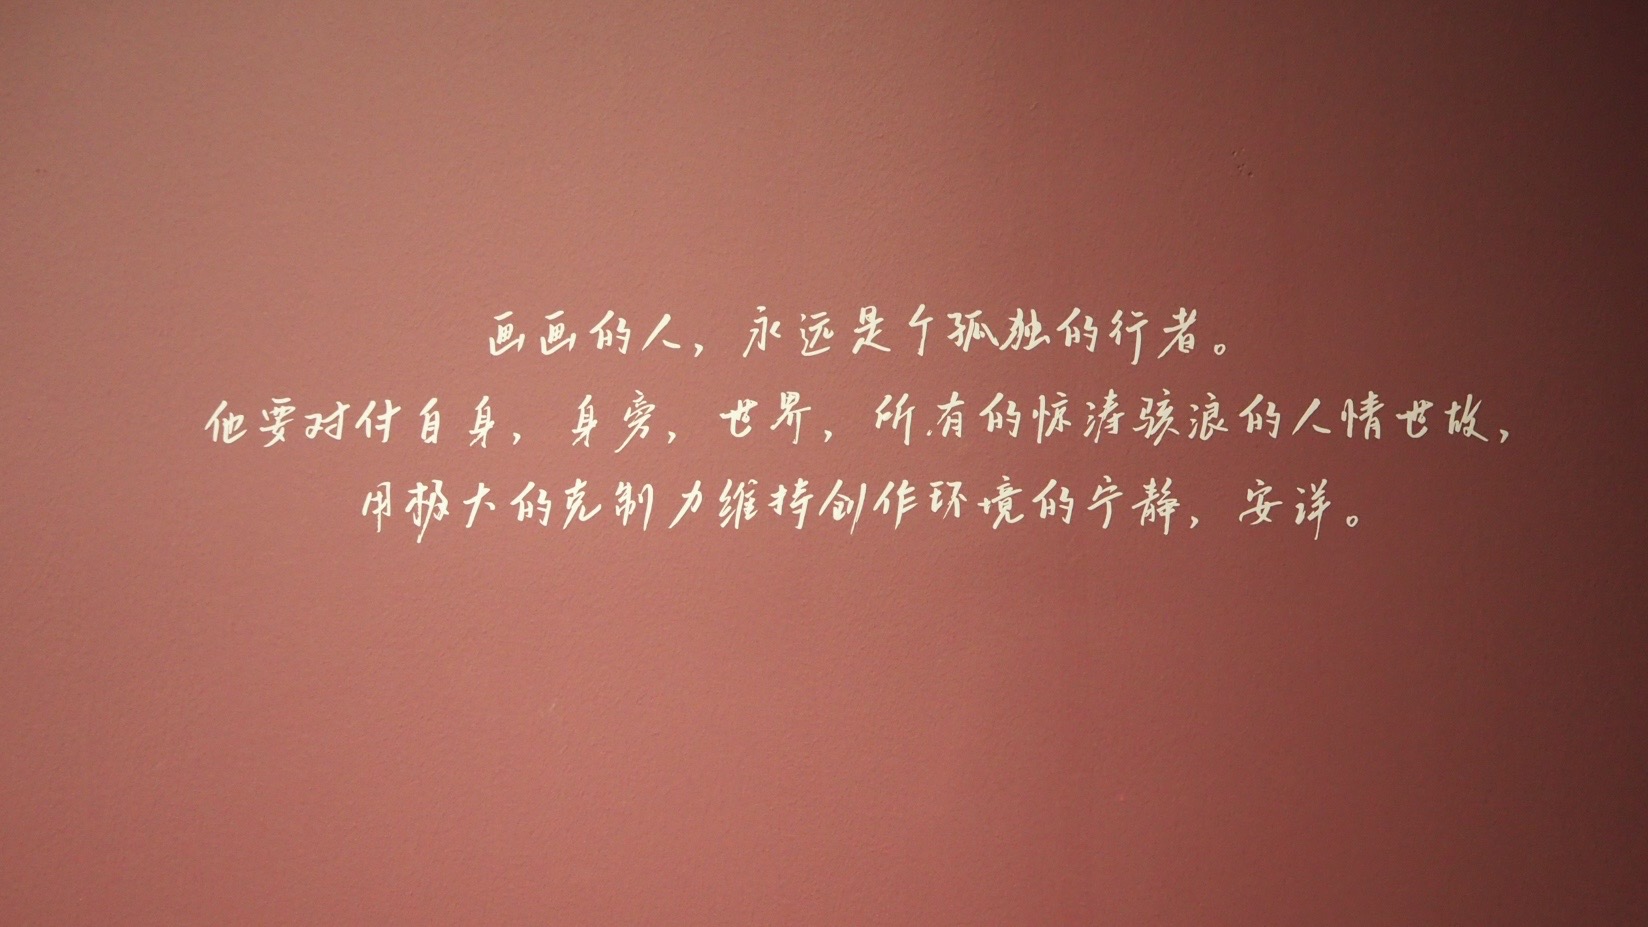 画画的人，永远是个孤独的行者。
他要对付自身，身旁，世界，所有的惊涛骇浪的人情世故，
用极大的克制力维持创作环境的宁静，安详。